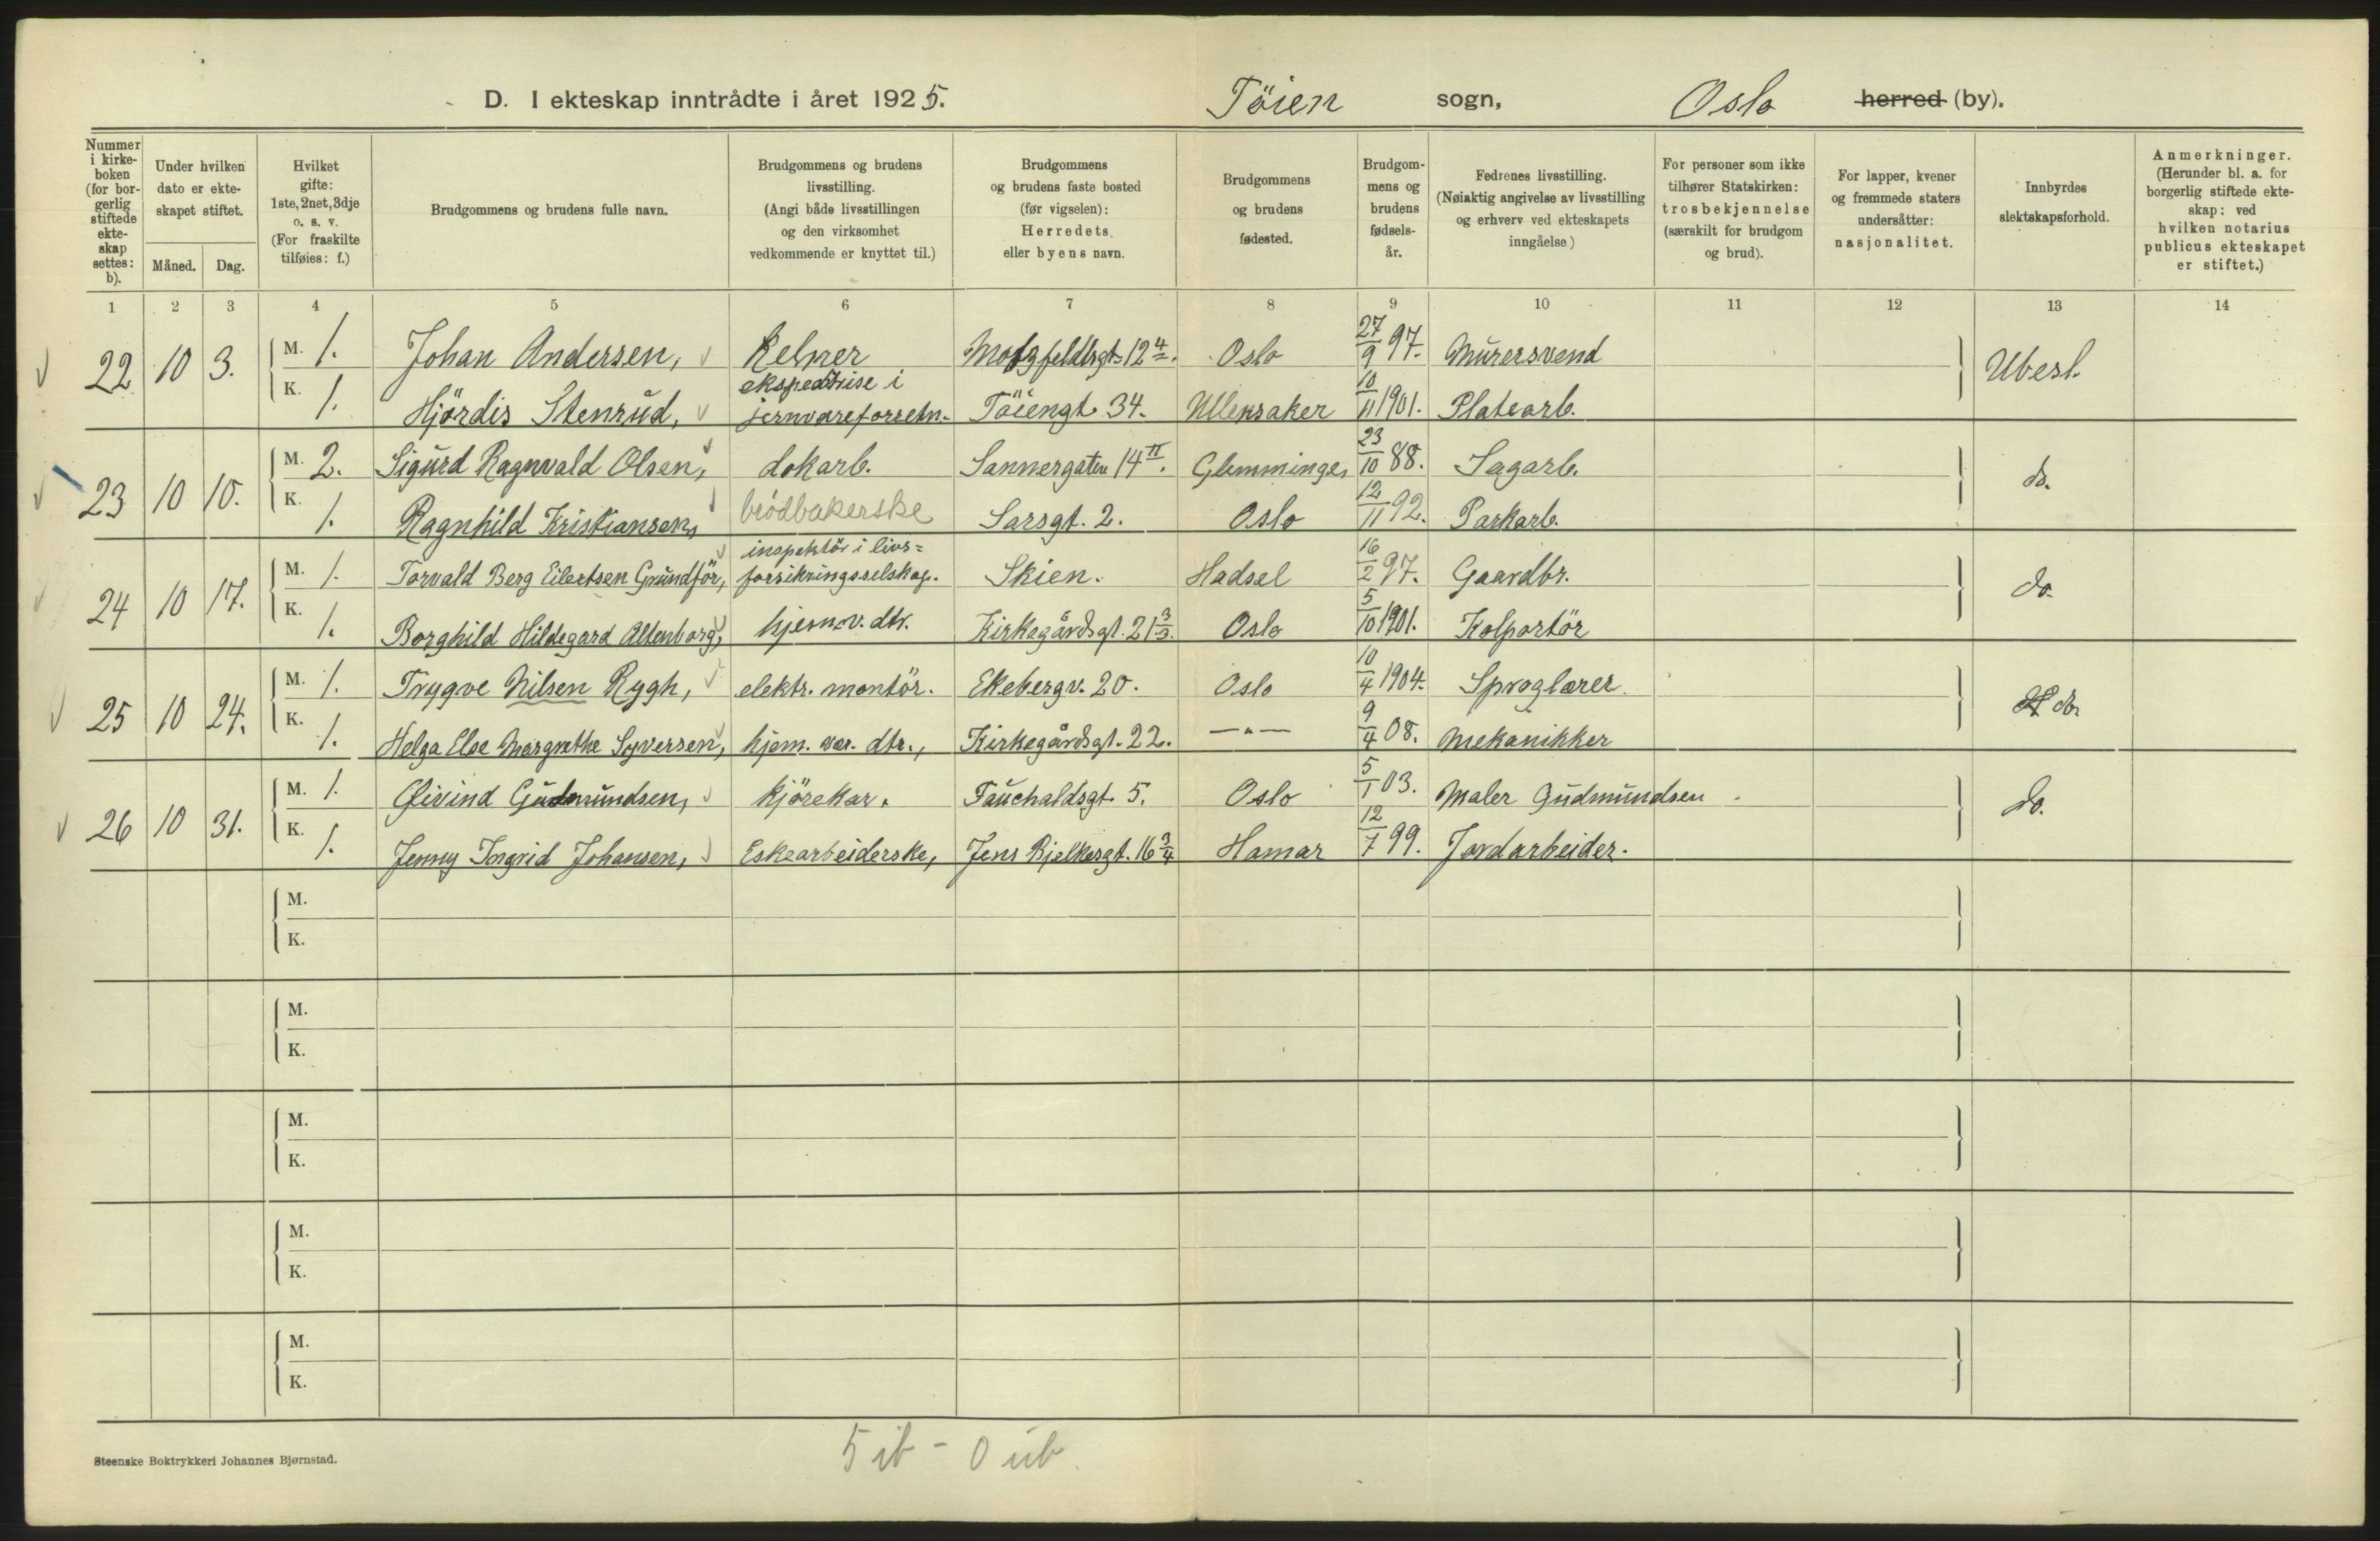 D. I ekteskap inntrådte i året 1925. Töien sogn, Oslo herred (by).
Nummer i kirkeboken (for borgerlig stiftede ekteskap settes: b).
Under hvilken dato er ekteskapet stiftet.
Måned. Dag.
Hvilket gifte: 1ste, 2net, 3dje o. s. v. (For fraskilte tilføies: f.)
Brudgommens og brudens fulle navn.
Brudgommens og brudens livsstilling. (Angi både livsstillingen og den virksomhet vedkommende er knyttet til.)
Brudgommens og brudens faste bosted (før vigselen): Herredets eller byens navn.
Brudgommens og brudens fødested.
Brudgommens og brudens fødselsår.
Fedrenes livsstilling. (Nøiaktig angivelse av livsstilling og erhverv ved ekteskapets inngåelse.)
For personer som ikke tilhører Statskirken: trosbekjennelse (særskilt for brudgom og brud).
For lapper, kvener og fremmede staters undersåtter: nasjonalitet.
Innbyrdes slektskapsforhold.
Anmerkninger. (Herunder bl. a. for borgerlig stiftede ekteskap: ved hvilken notarius publicus ekteskapet er stiftet.)
1 2 3 4 5 6 7 8 9 10 11 12 13 14
22 10 3. M. 1. Johan Andersen, Kelner Motzfeldtsgt. 12 4. Oslo 27/9 97. Murersvend Ubesl.
K. 1. Hjördis Stenrud, ekspeditrise i jernvareforretn. Töiengt. 34. Ullensaker 10/11 1901. Platearb.
23 10 10. M. 2. Sigurd Ragnvald Olsen, dokarb. Sannergaten 14 II. Glemminge, 23/10 88. Sagarb. do.
K. 1. Ragnhild Kristiansen, brödbakerske Sarsgt. 2. Oslo 12/11 92. Parkarb.
24 10 17. M. 1. Torvald Berg Eilertsen Grundför, inspektör i livs= forsikringsselskap. Skien. Hadsel 16/2 97. Gaardbr. do.
K. 1. Borghild Hildegard Altenborg, hjem.v. dtr. Kirkegårdsgt. 21 3/3. Oslo 5/10 1901. Kolportör
25 10 24. M. 1. Trygve Nilsen Rygh, elektr. montör. Ekebergv. 20. Oslo 10/4 1904. Sproglærer. do.
K. 1. Helga Else Margrethe Syversen, hjem. vær. dtr., Kirkegårdsgt. 22. —"— 9/4 08. Mekanikker
26 10 31. M. 1. Öivind Gudmundsen, kjörekar. Fauchaldsgt. 5. Oslo 5/1 03. Maler Gudmundsen do.
K. 1. Jenny Ingrid Johansen, Eskearbeiderske, Jens Bjelkesgt. 16 3/4 Hamar 12/7 99. Jordarbeider.
M.
K.
M.
K.
M.
K.
M.
K.
M.
K.
5 ib - 0 ub.
Steenske Boktrykkeri Johannes Bjørnstad.